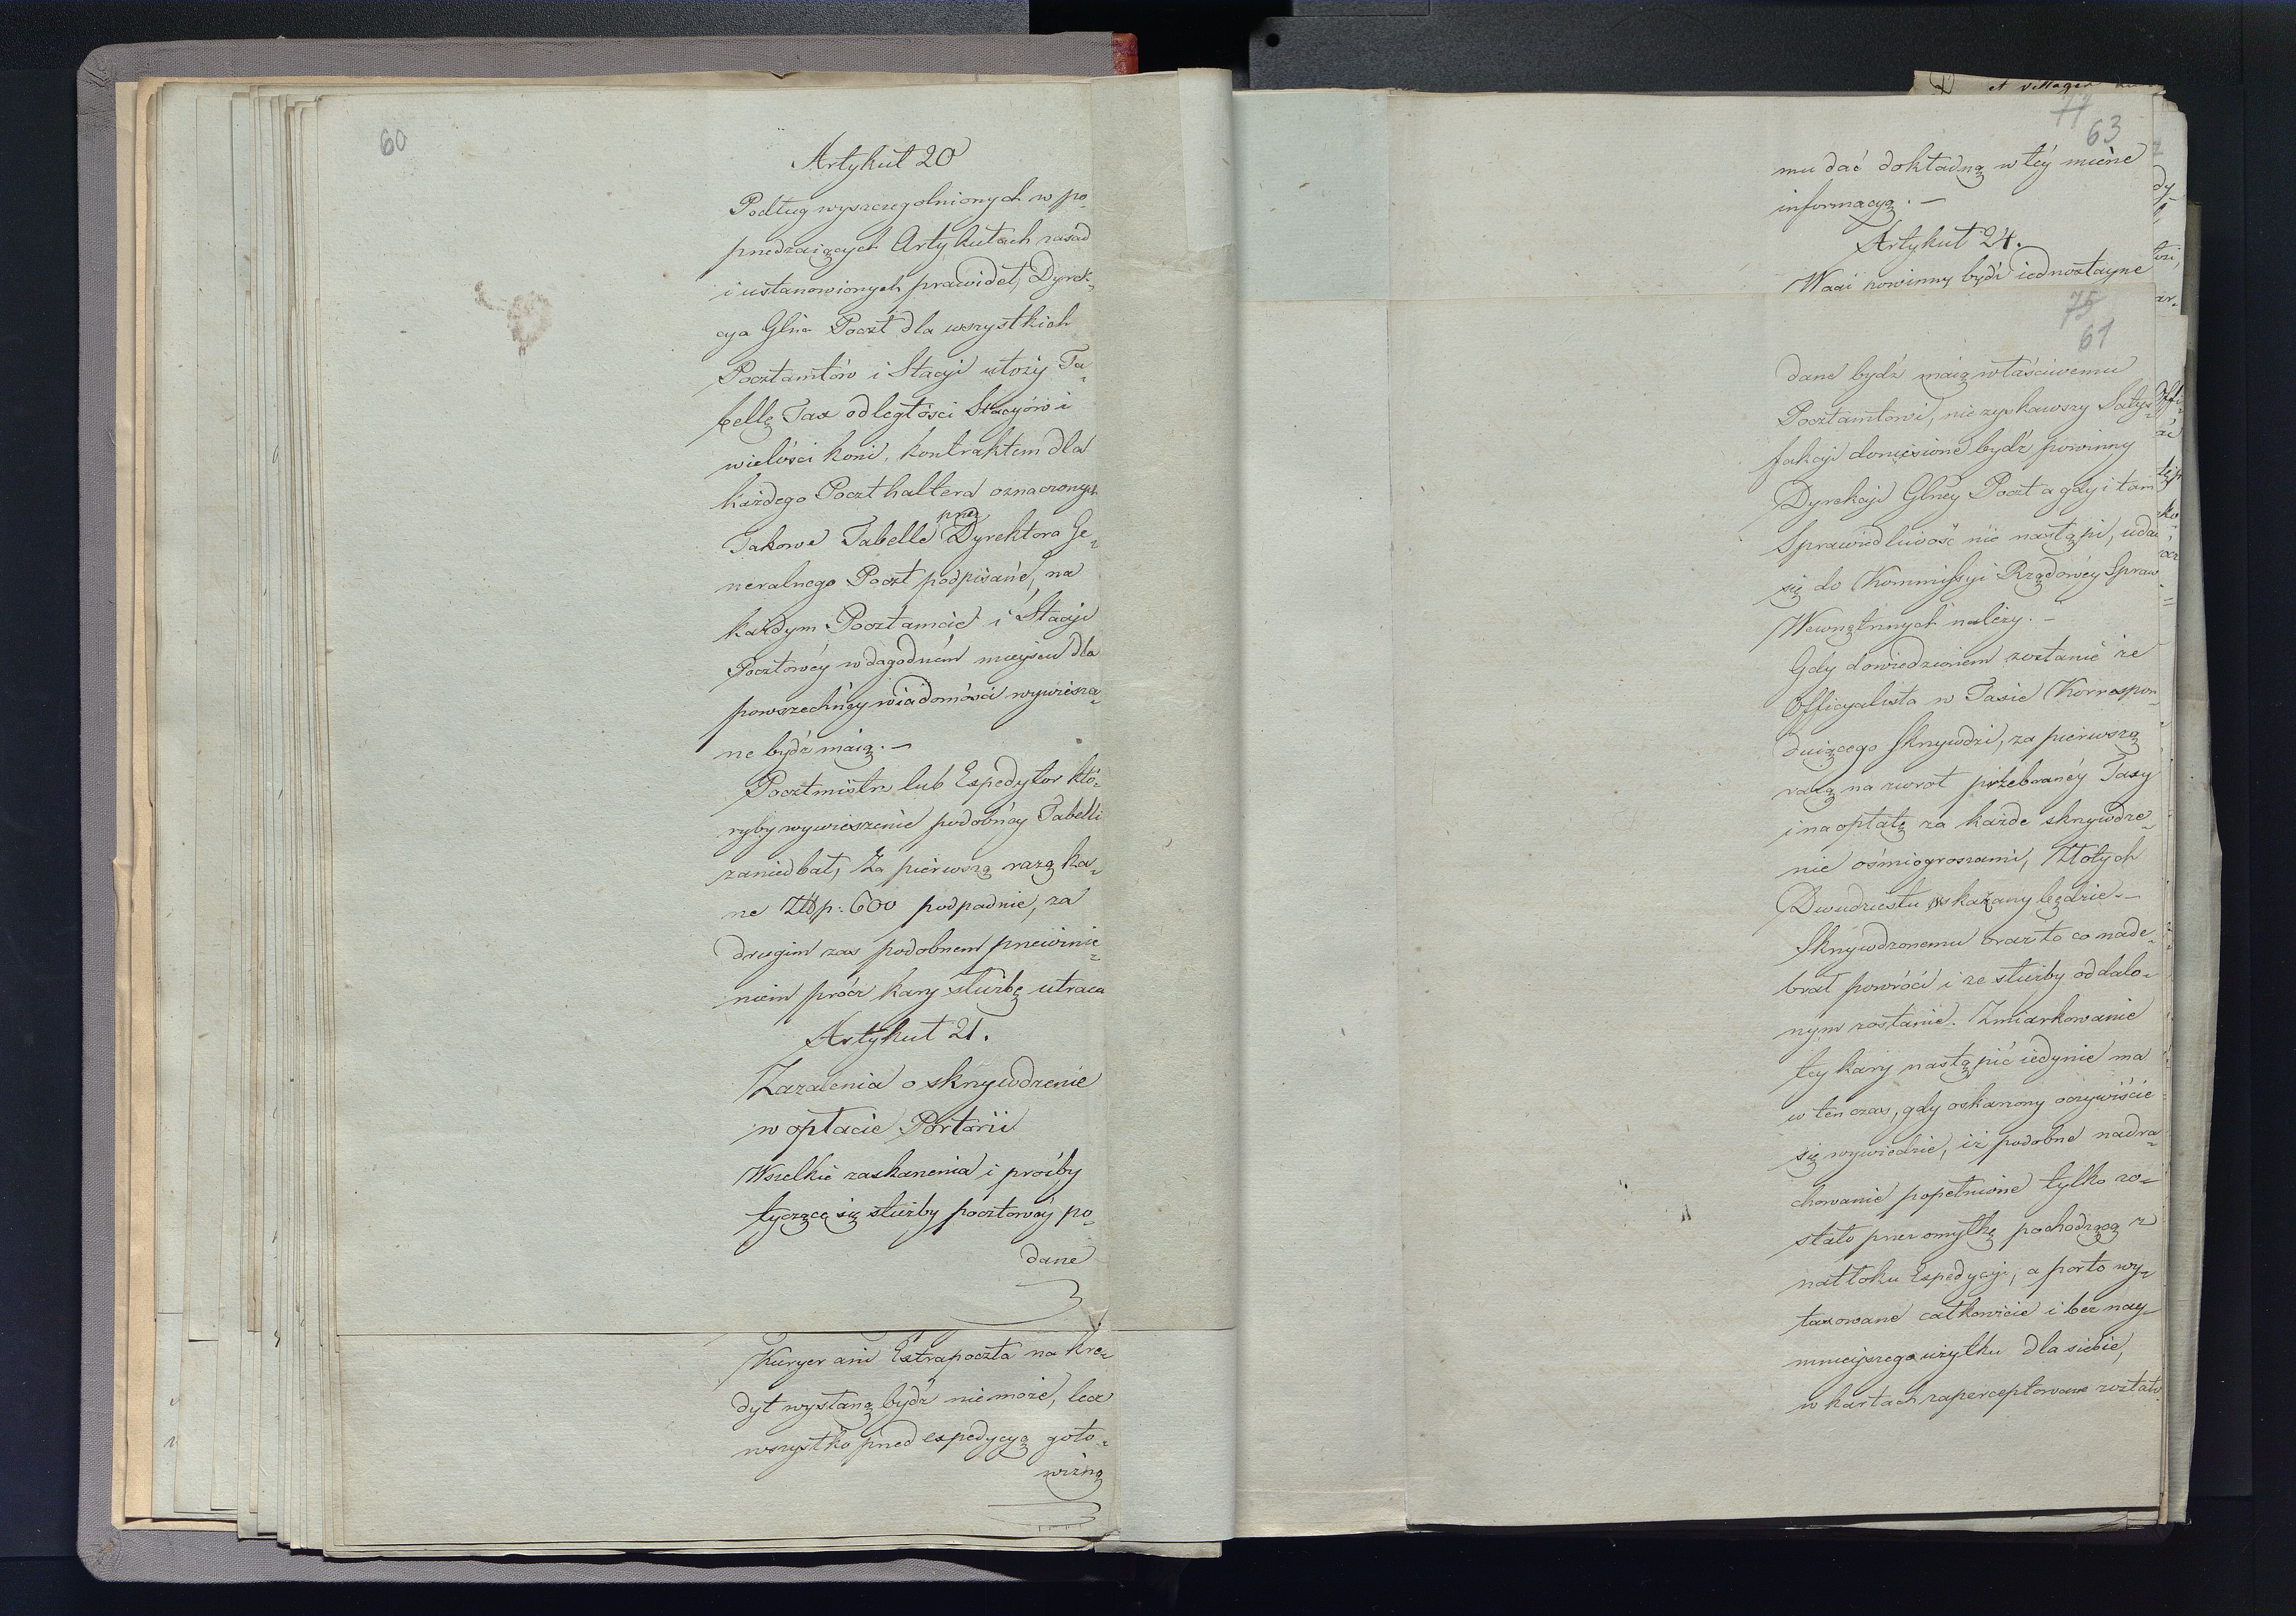 60
Artykuł 20
Podług wyszczegolnionych w po-
przedzaiących Artykułach zasad
i ustanowionych prawideł, Dyrek-
cya Glna Poczt dla wszystkich
Pocztamtów i Stacyi ułoży Ta-
bellę Tax odległości Stacyów i
wielości koni, kontraktem dla
każdego Poczthaltera oznaczonych
Takowe Tabelle przez Dyrektora Ge-
neralnego Poczt podpisané, na
każdym Pocztamcie i Stacyi
Pocztowéy w dagodném mieyscu dla
powszechnéy wiadomości wywiesza-
ne bydź maią. —
Pocztmistrz lub Expedytor któ-
ryby wywieszenie podobnéy Tabelli
zaniedbał, Za pierwszą razą ka-
ne Złłp: 600 podpadnie, za
drugim zas podobnem przewinie-
niem prócz kary służbę utraca
Artykuł 21.
Zazalenia o skrzywdzenie
w opłacie Portorii
Wszelkie zaskarzenia i prośby
tyczącé się służby pocztowéy po-
dane
Kuryer ani Extrapoczta na kre-
dyt wysłaną bydź nie może, lecz
wszystko przed expedycyą goto-
wizną
et villages
77
63
mu dać dokładną w téy mierze
informacyą. —
Artykuł 24.
Wagi powinny bydź iednostayne
75
61
dane bydź maią właściwemu
Pocztamtowi, nie zyskawszy Satys-
fakcyi doniesioné bydź powinny
Dyrekcyi Glnéy Poczt a gdy i tam
Sprawiedliwość nie nastąpi, udać
się do Kommissyi Rządowéy Spraw
Wewnętrznych należy. —
Gdy dowiedzioném zostanie że
Officyalista w Taxie Korrespon-
duiącego skrzywdzi, za pierwszą
razą na zwrot przebranéy Taxy
i na opłatę za każde skrzywdze-
nie ośmiogroszami, Złotych
Dwudziestu wskazany będzie. —
Skrzywdzonemu oraz to co nade-
brał powróci i ze służby oddalo-
nym zostanie. Zmiarkowanie
téy kary nastąpić iedynie ma
w ten czas, gdy oskarzony oczywiście
się wywiedzie, iż podobne nadra-
chowanie popełnione tylko zo-
stało przez omyłkę pochodzącą z
natłoku Expedycyi, a porto wy-
taxowane całkowicie i bez nay-
mnieyszego użytku dla siebie,
w kartach zaperceptowane zostało